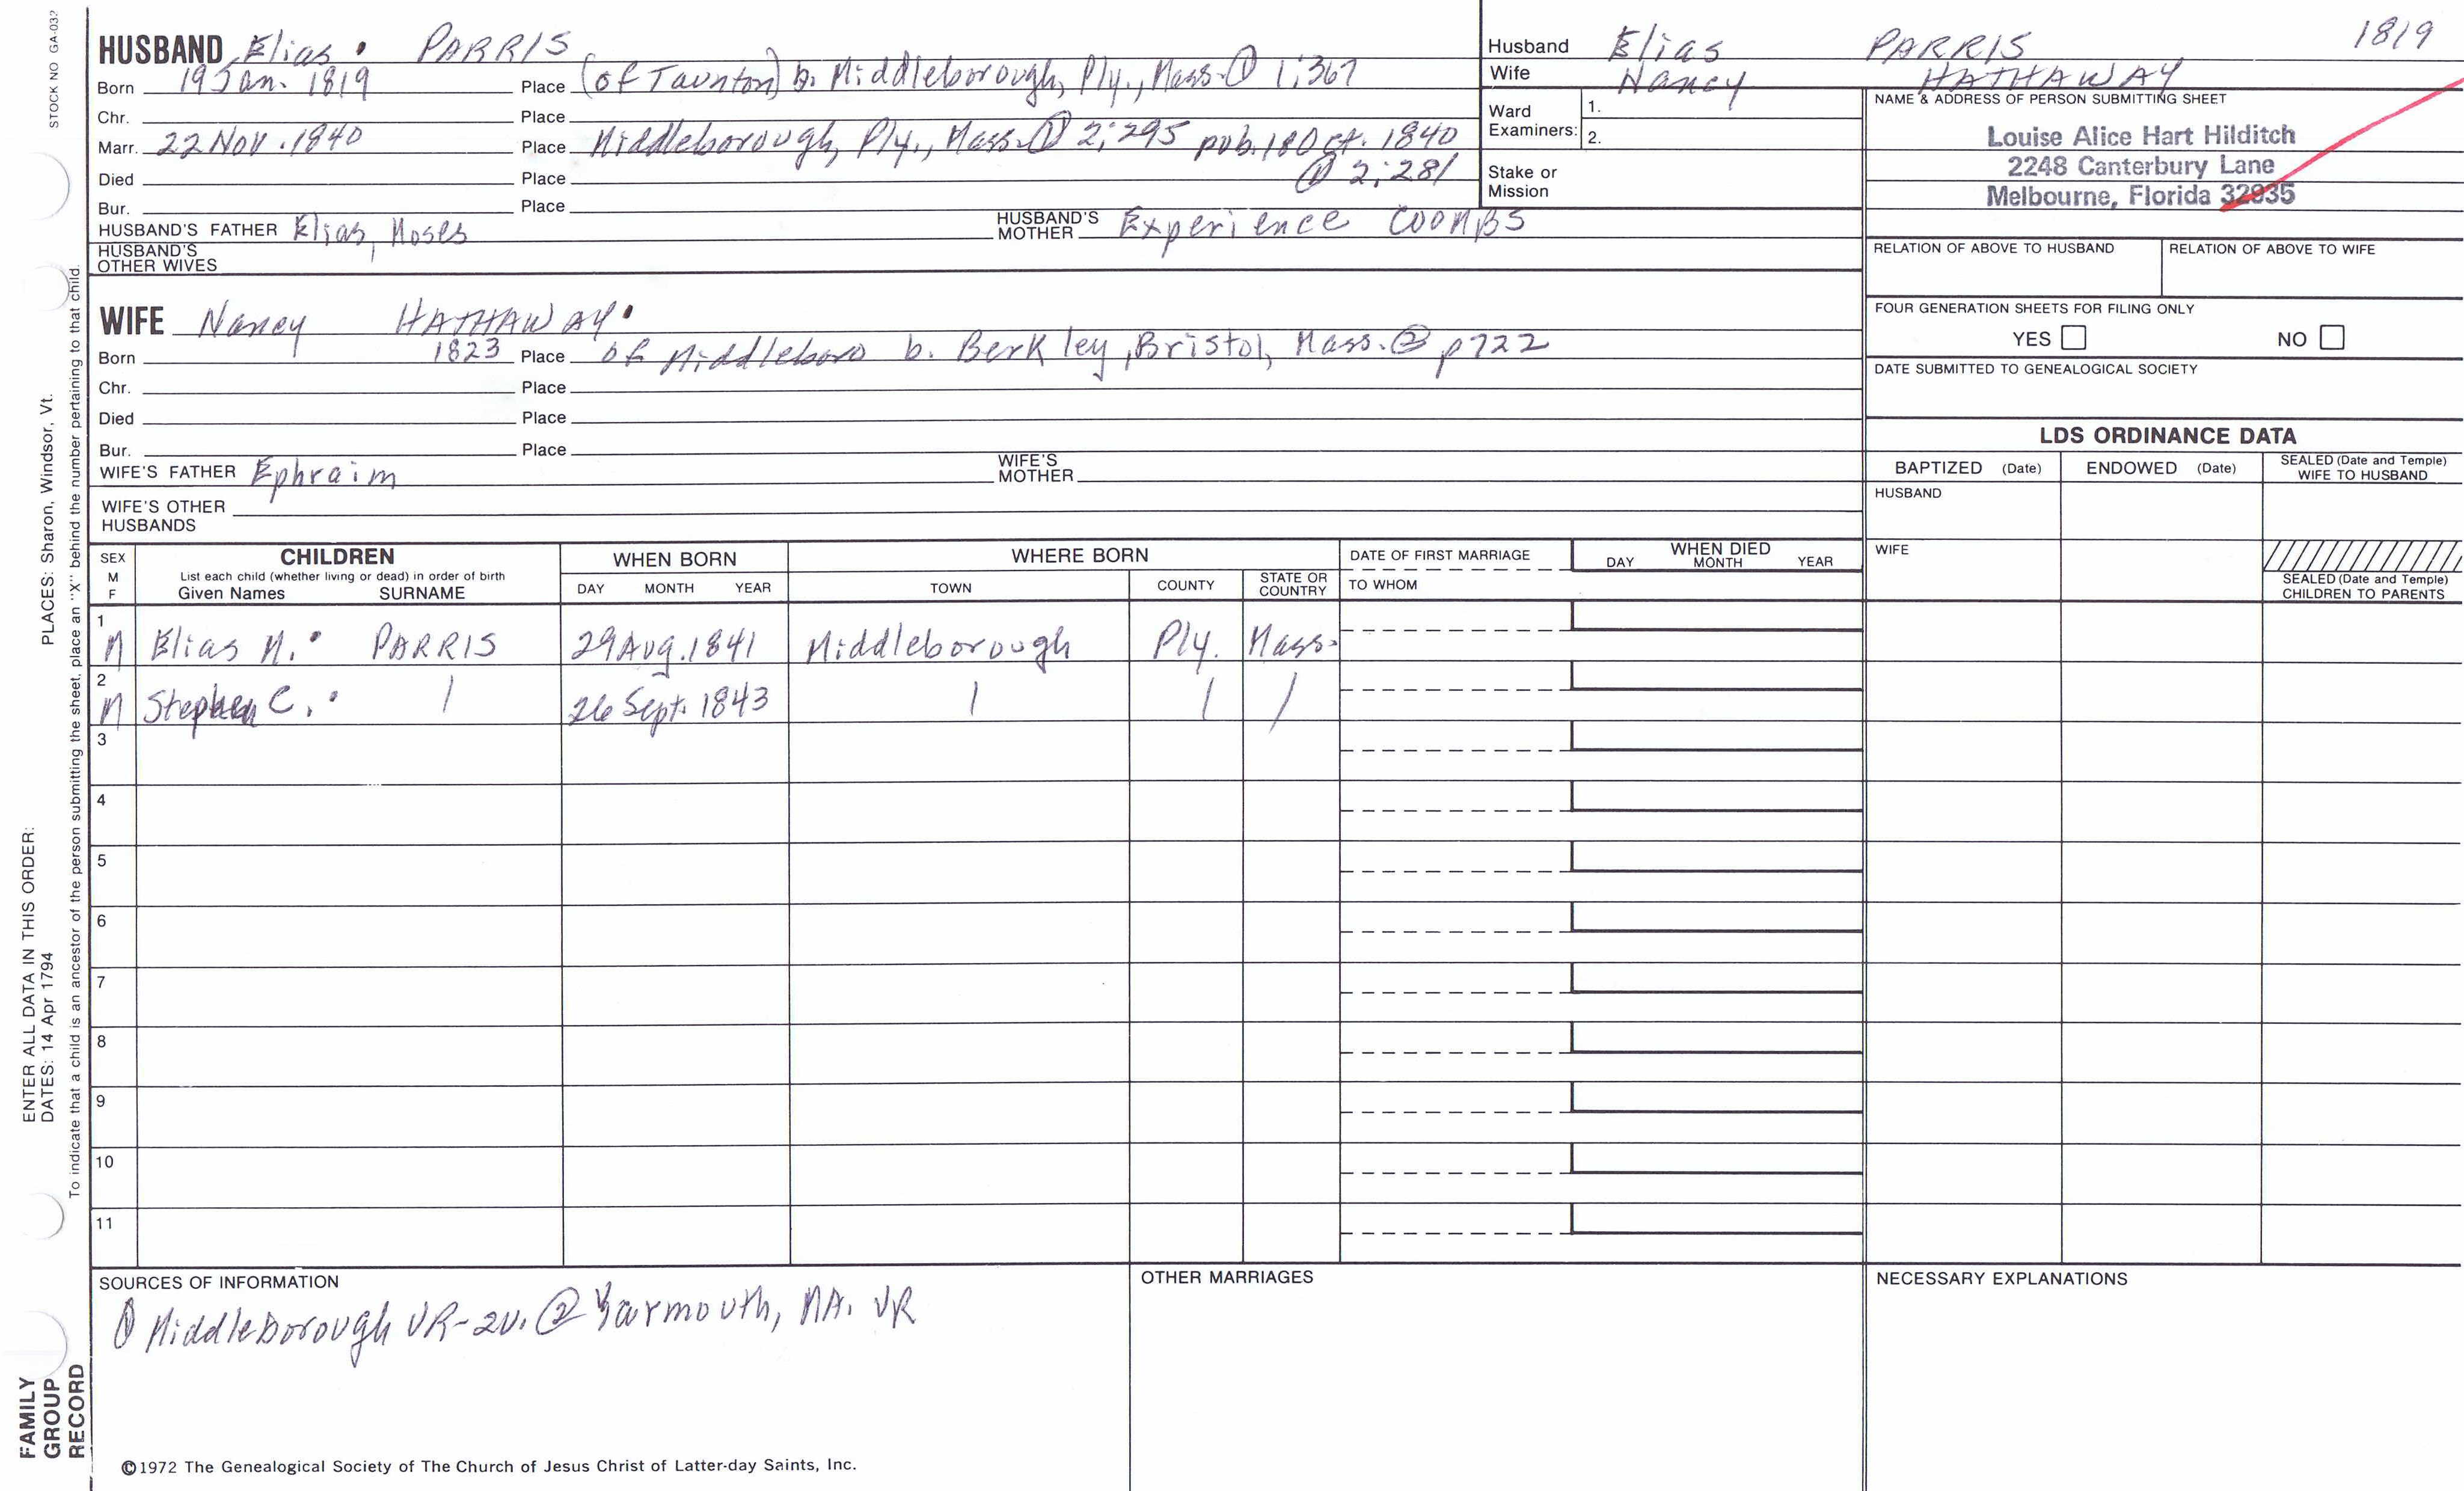 STOCK NO GA-032
HUSBAND Elias PARRIS
Born 19 Jan. 1819 Place (of Taunton) b. Middleborough, Ply., Mass. ① 1:367
Chr. Place
Marr. 22 Nov. 1840 Place Middleborough, Ply., Mass. ① 2:295 pub. 18 Oct. 1840
Died Place ① 2:281
Bur. Place
HUSBAND'S FATHER Elias, Moses HUSBAND'S MOTHER Experience COOMBS
HUSBAND'S OTHER WIVES
WIFE Nancy HATHAWAY
Born 1823 Place of Middleboro b. Berkley, Bristol, Mass. ② p722
Chr. Place
Died Place
Bur. Place
WIFE'S FATHER Ephraim WIFE'S MOTHER
WIFE'S OTHER HUSBANDS
Husband Elias PARRIS 1819
Wife Nancy HATHAWAY
Ward Examiners: 1.
2.
Stake or Mission
NAME & ADDRESS OF PERSON SUBMITTING SHEET
Louise Alice Hart Hilditch
2248 Canterbury Lane
Melbourne, Florida 32935
RELATION OF ABOVE TO HUSBAND RELATION OF ABOVE TO WIFE
FOUR GENERATION SHEETS FOR FILING ONLY
YES NO
DATE SUBMITTED TO GENEALOGICAL SOCIETY
LDS ORDINANCE DATA
BAPTIZED (Date) ENDOWED (Date) SEALED (Date and Temple) WIFE TO HUSBAND
HUSBAND
WIFE
SEALED (Date and Temple) CHILDREN TO PARENTS
SEX M F CHILDREN WHEN BORN WHERE BORN DATE OF FIRST MARRIAGE WHEN DIED
List each child (whether living or dead) in order of birth
Given Names SURNAME DAY MONTH YEAR TOWN COUNTY STATE OR COUNTRY TO WHOM DAY MONTH YEAR
1 M Elias M. PARRIS 29 Aug. 1841 Middleborough Ply. Mass.
2 M Stephen C. 26 Sept. 1843
3
4
5
6
7
8
9
10
11
SOURCES OF INFORMATION
① Middleborough VR-2v. ② Yarmouth, MA. VR
OTHER MARRIAGES
NECESSARY EXPLANATIONS
©1972 The Genealogical Society of The Church of Jesus Christ of Latter-day Saints, Inc.
FAMILY
GROUP
RECORD
ENTER ALL DATA IN THIS ORDER:
DATES: 14 Apr 1794
PLACES: Sharon, Windsor, Vt.
To indicate that a child is an ancestor of the person submitting the sheet, place an "X" behind the number pertaining to that child.